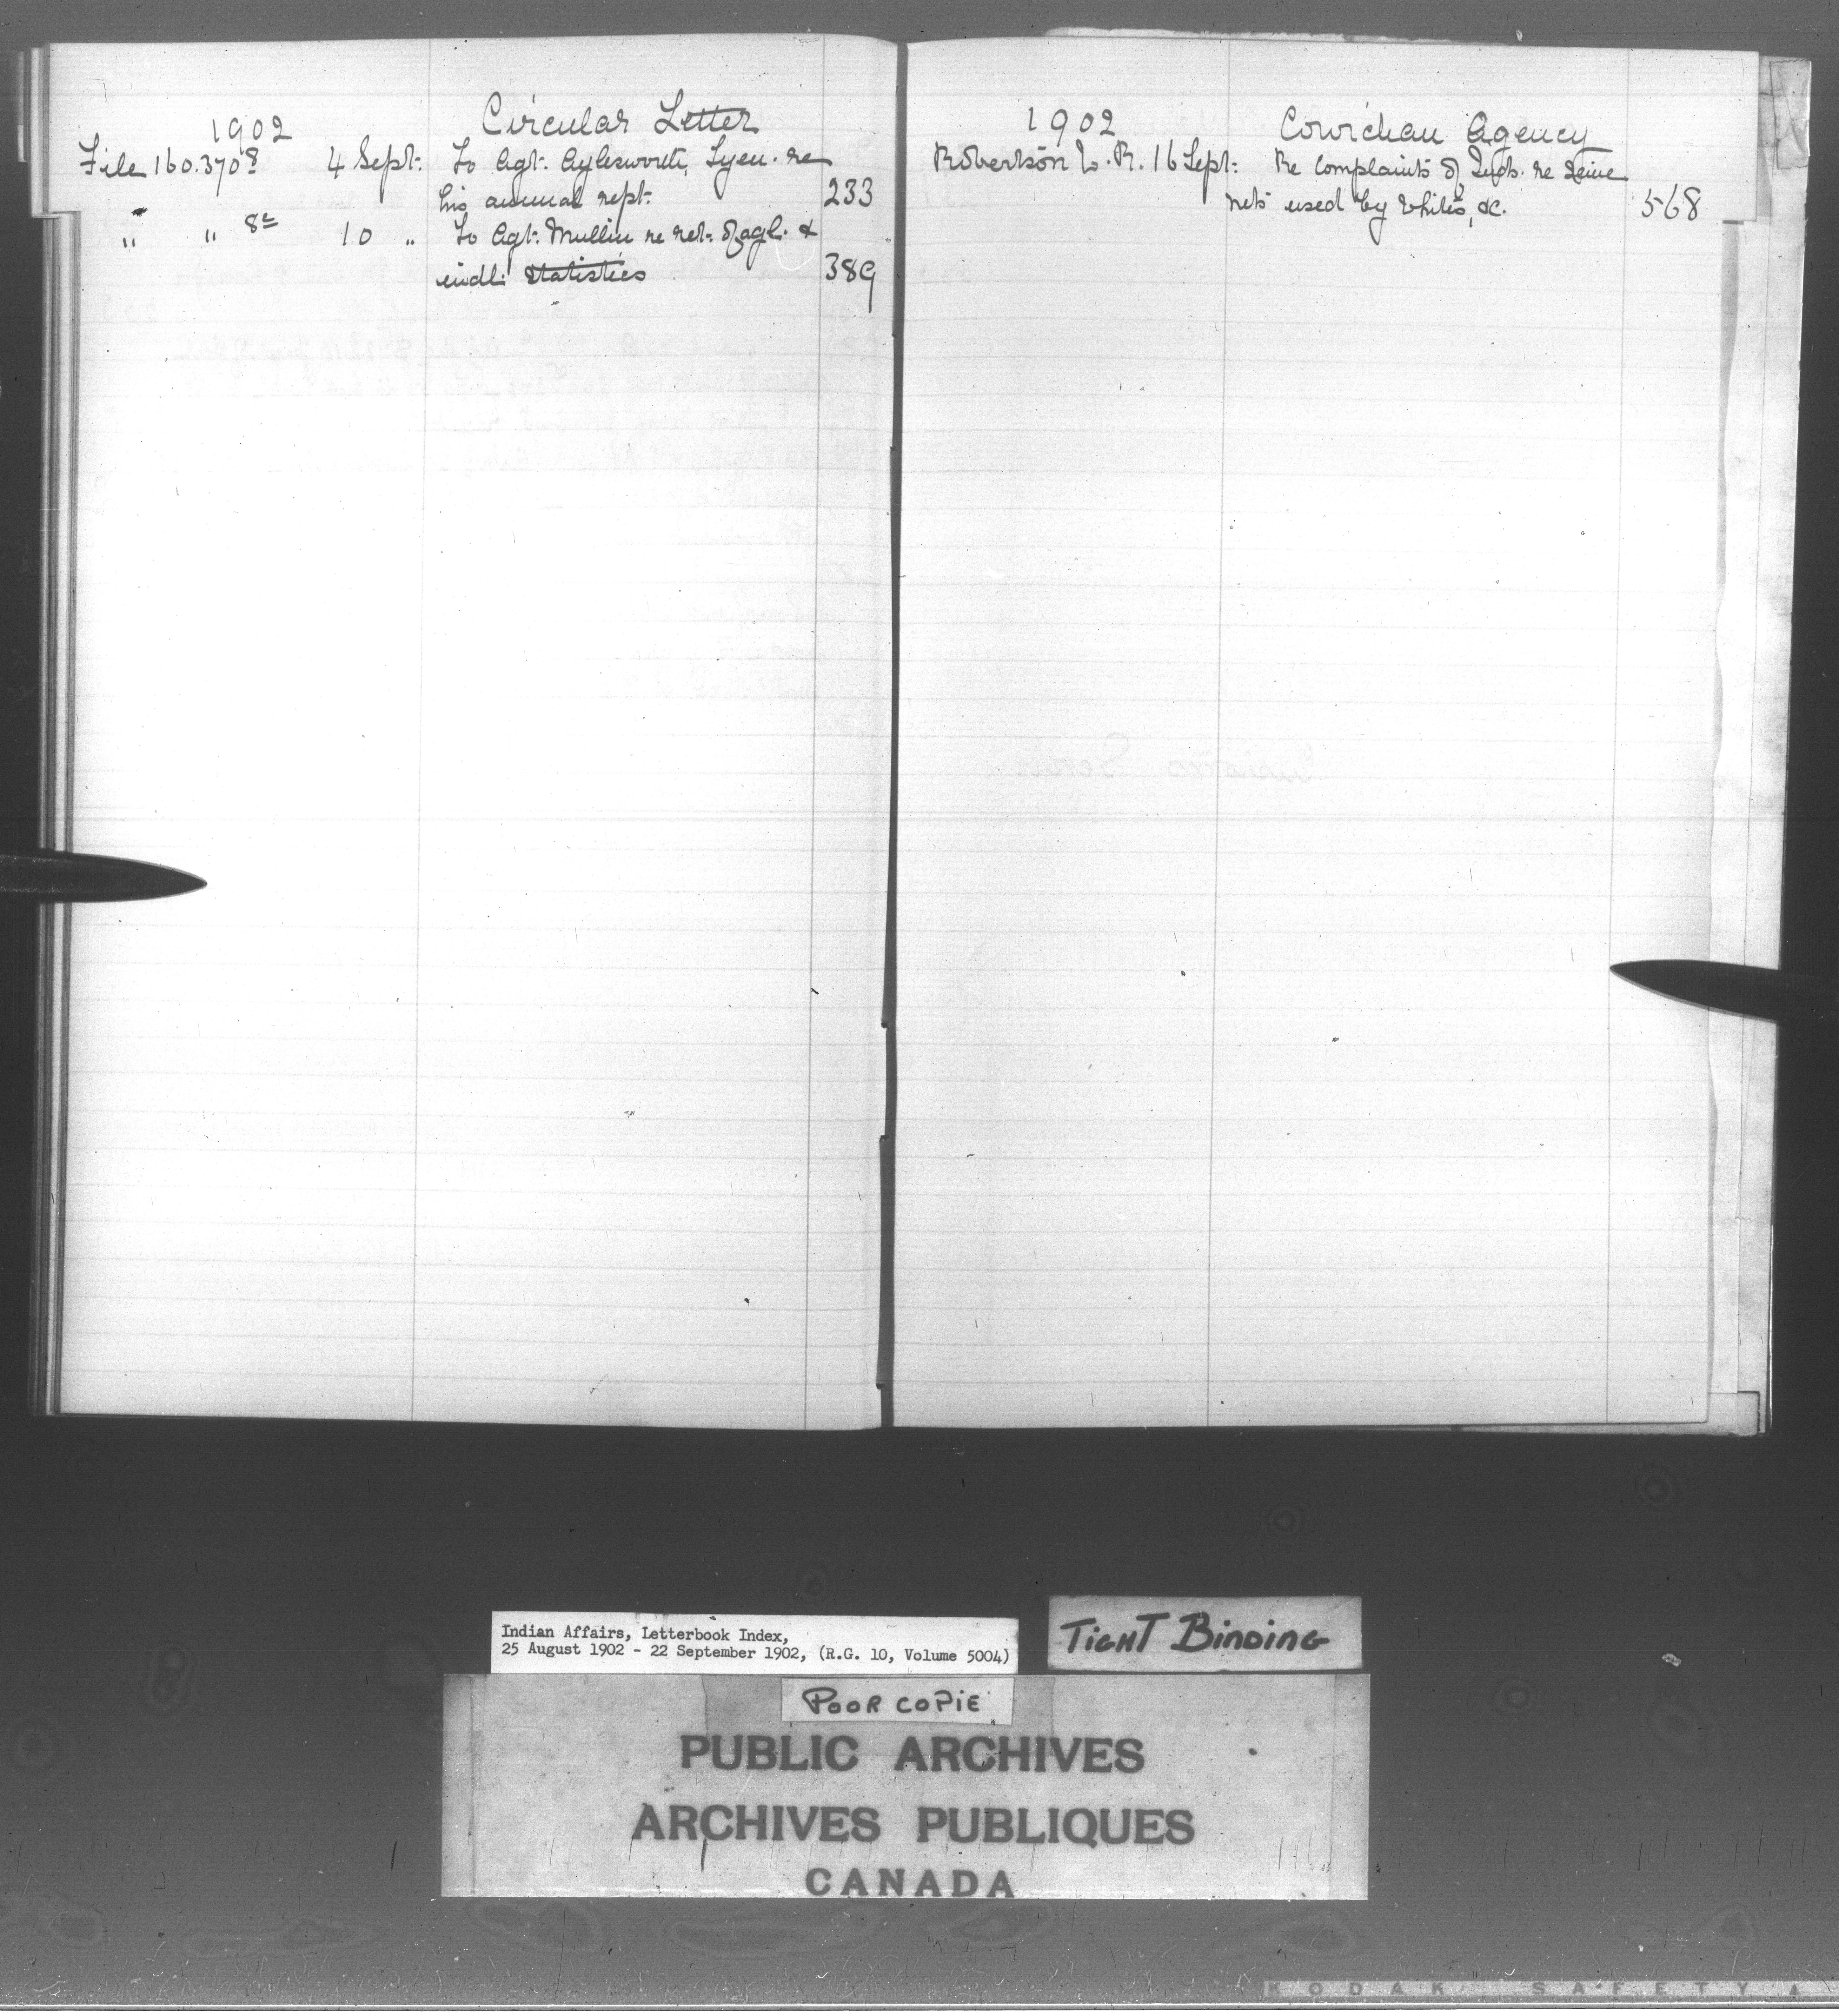 1902 Circular Letter
File 160.370⁸ 4 Sept. To Agt. Aylesworth, Tyen. re
his annual rept. 233
" " 8ᵃ 10 " To Agt. Mullin re ret. of agl. &
indl. statistics 389
1902 Cowichan Agency
Robertson W. R. 16 Sept. Re complaints of Inds. re seine
nets used by whites, &c. 568
Indian Affairs, Letterbook Index,
25 August 1902 - 22 September 1902, (R.G. 10, Volume 5004)
TIGHT BINDING
POOR COPIE
PUBLIC ARCHIVES
ARCHIVES PUBLIQUES
CANADA
KODAK SAFETY